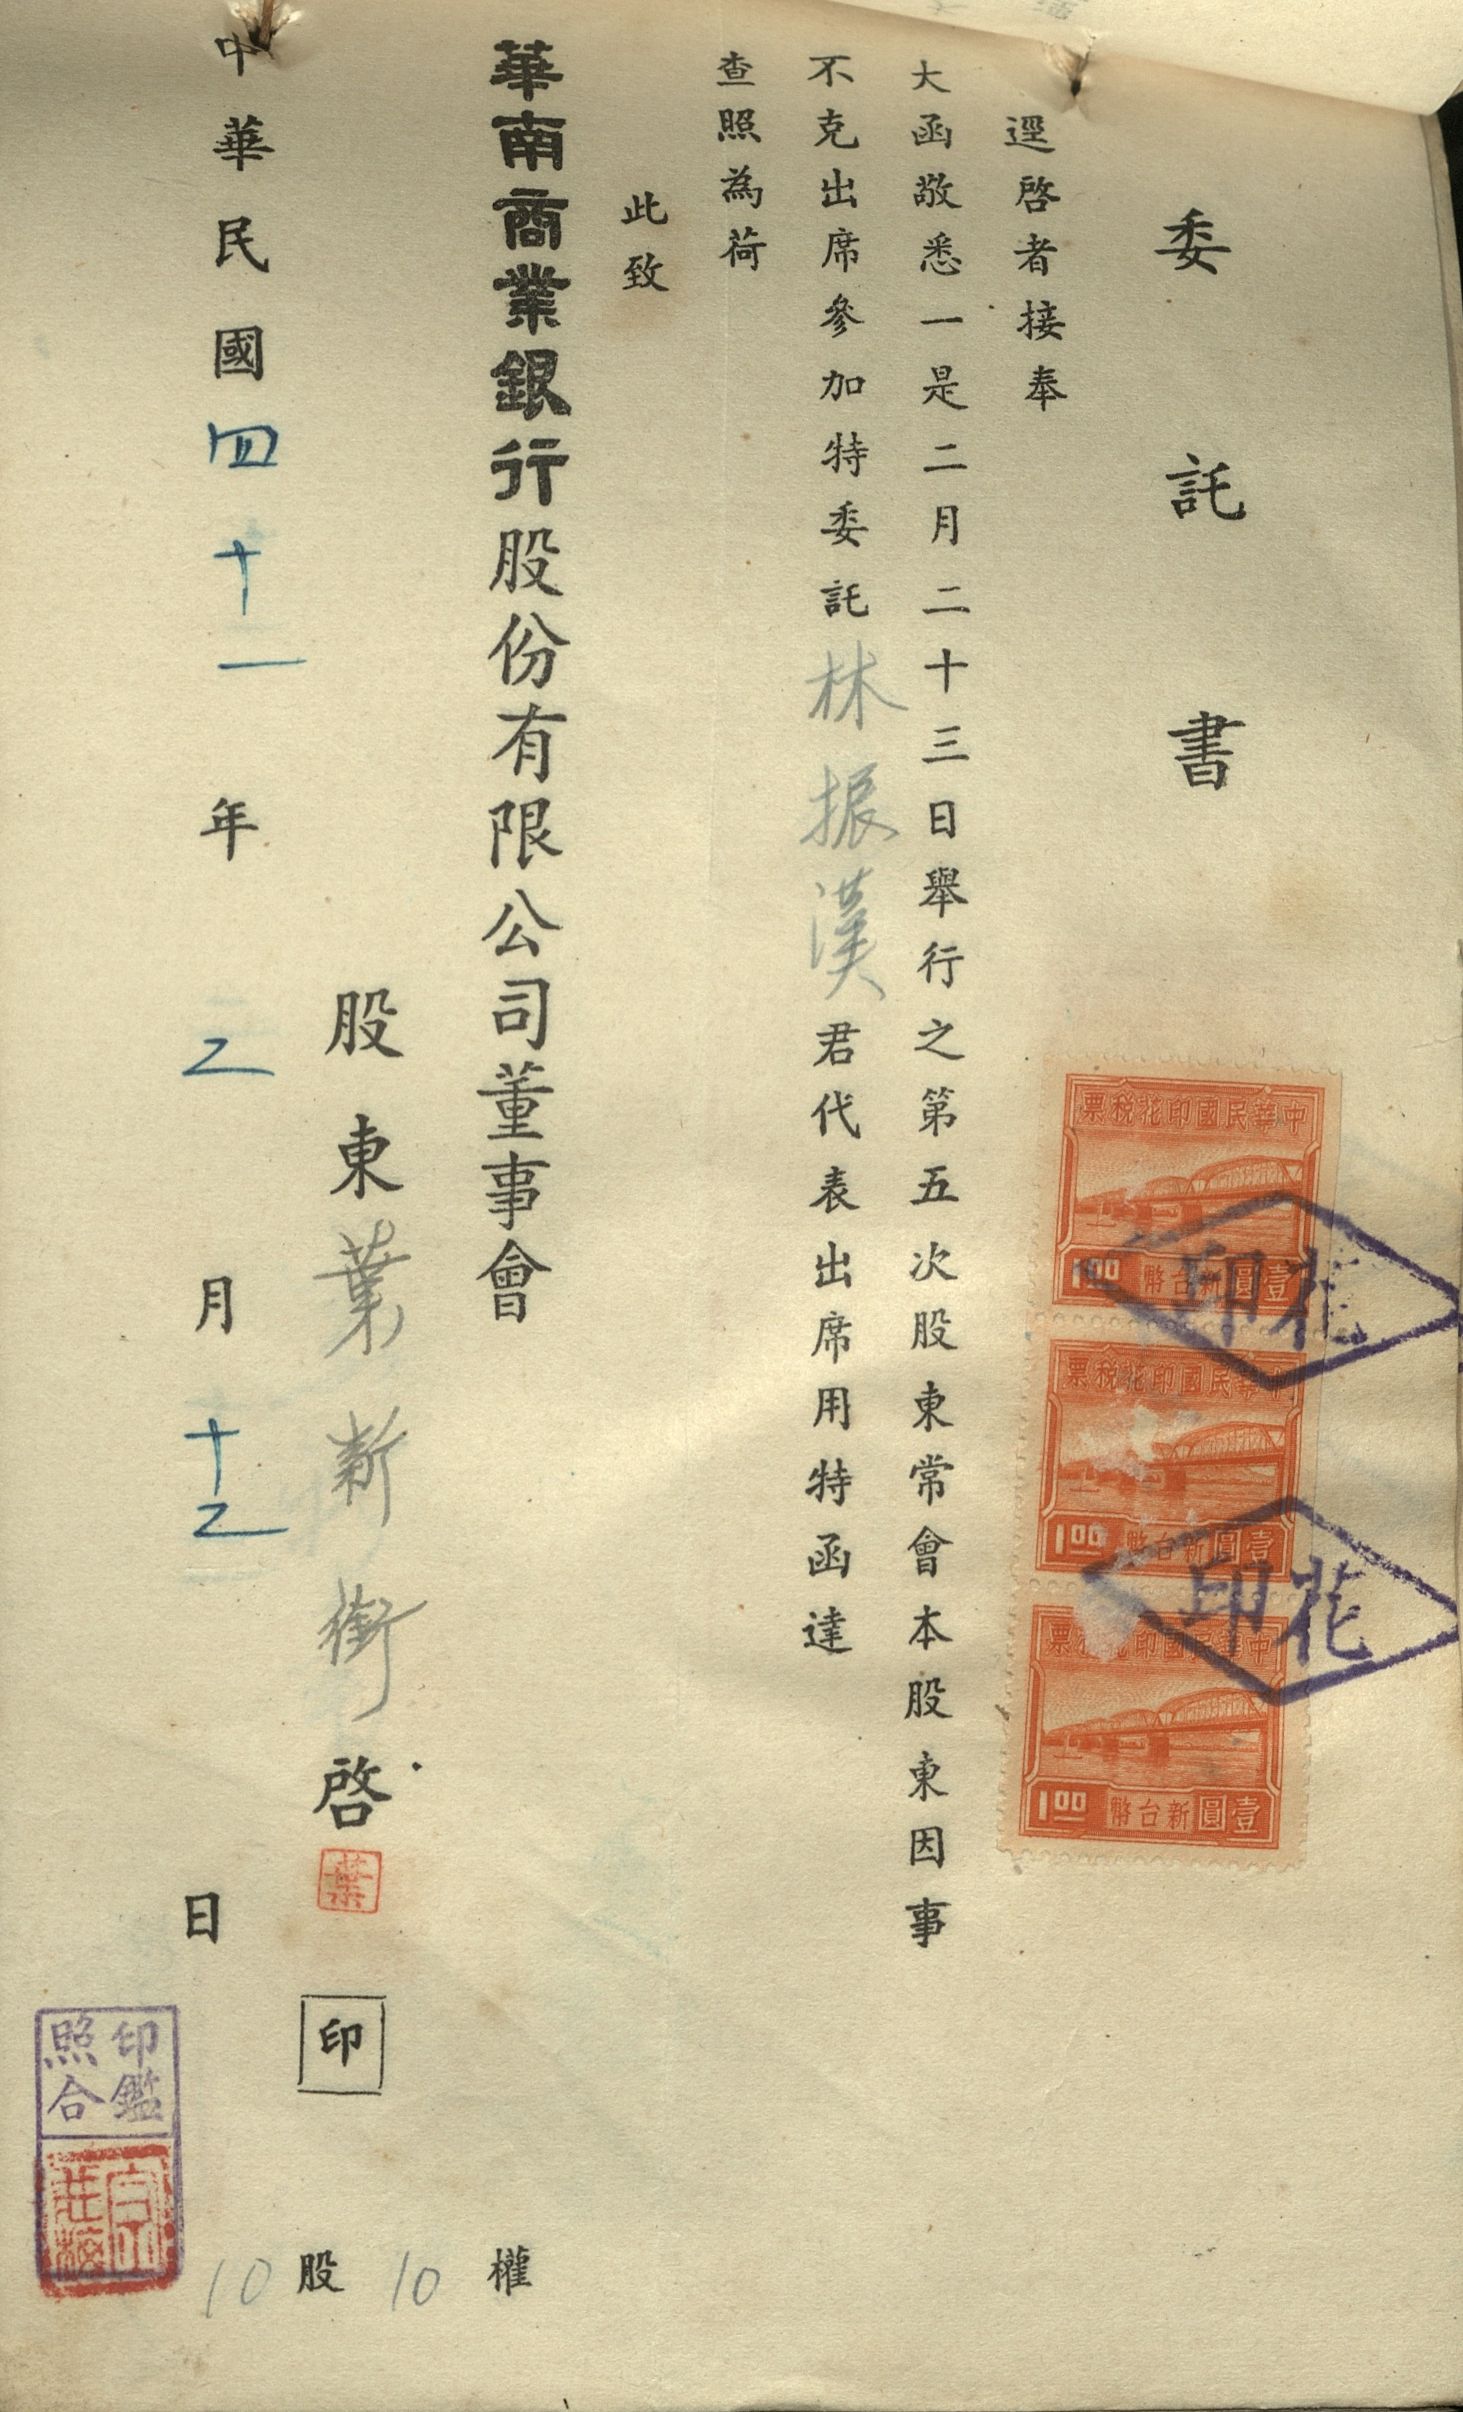 委託書
逕啓者接奉
大函敬悉一是二月二十三日舉行之第五次股東常會本股東因事
不克出席參加特委託林振漢君代表出席用特函達
查照為荷
此致
華南商業銀行股份有限公司董事會
股東葉新衡啓
葉
印
中華民國四十一年二月十二日
10股10權
中華民國印花稅票
1.00 新台幣壹圓
中華民國印花稅票
1.00 新台幣壹圓
中華民國印花稅票
1.00 新台幣壹圓
印花
印花
印鑑
照合